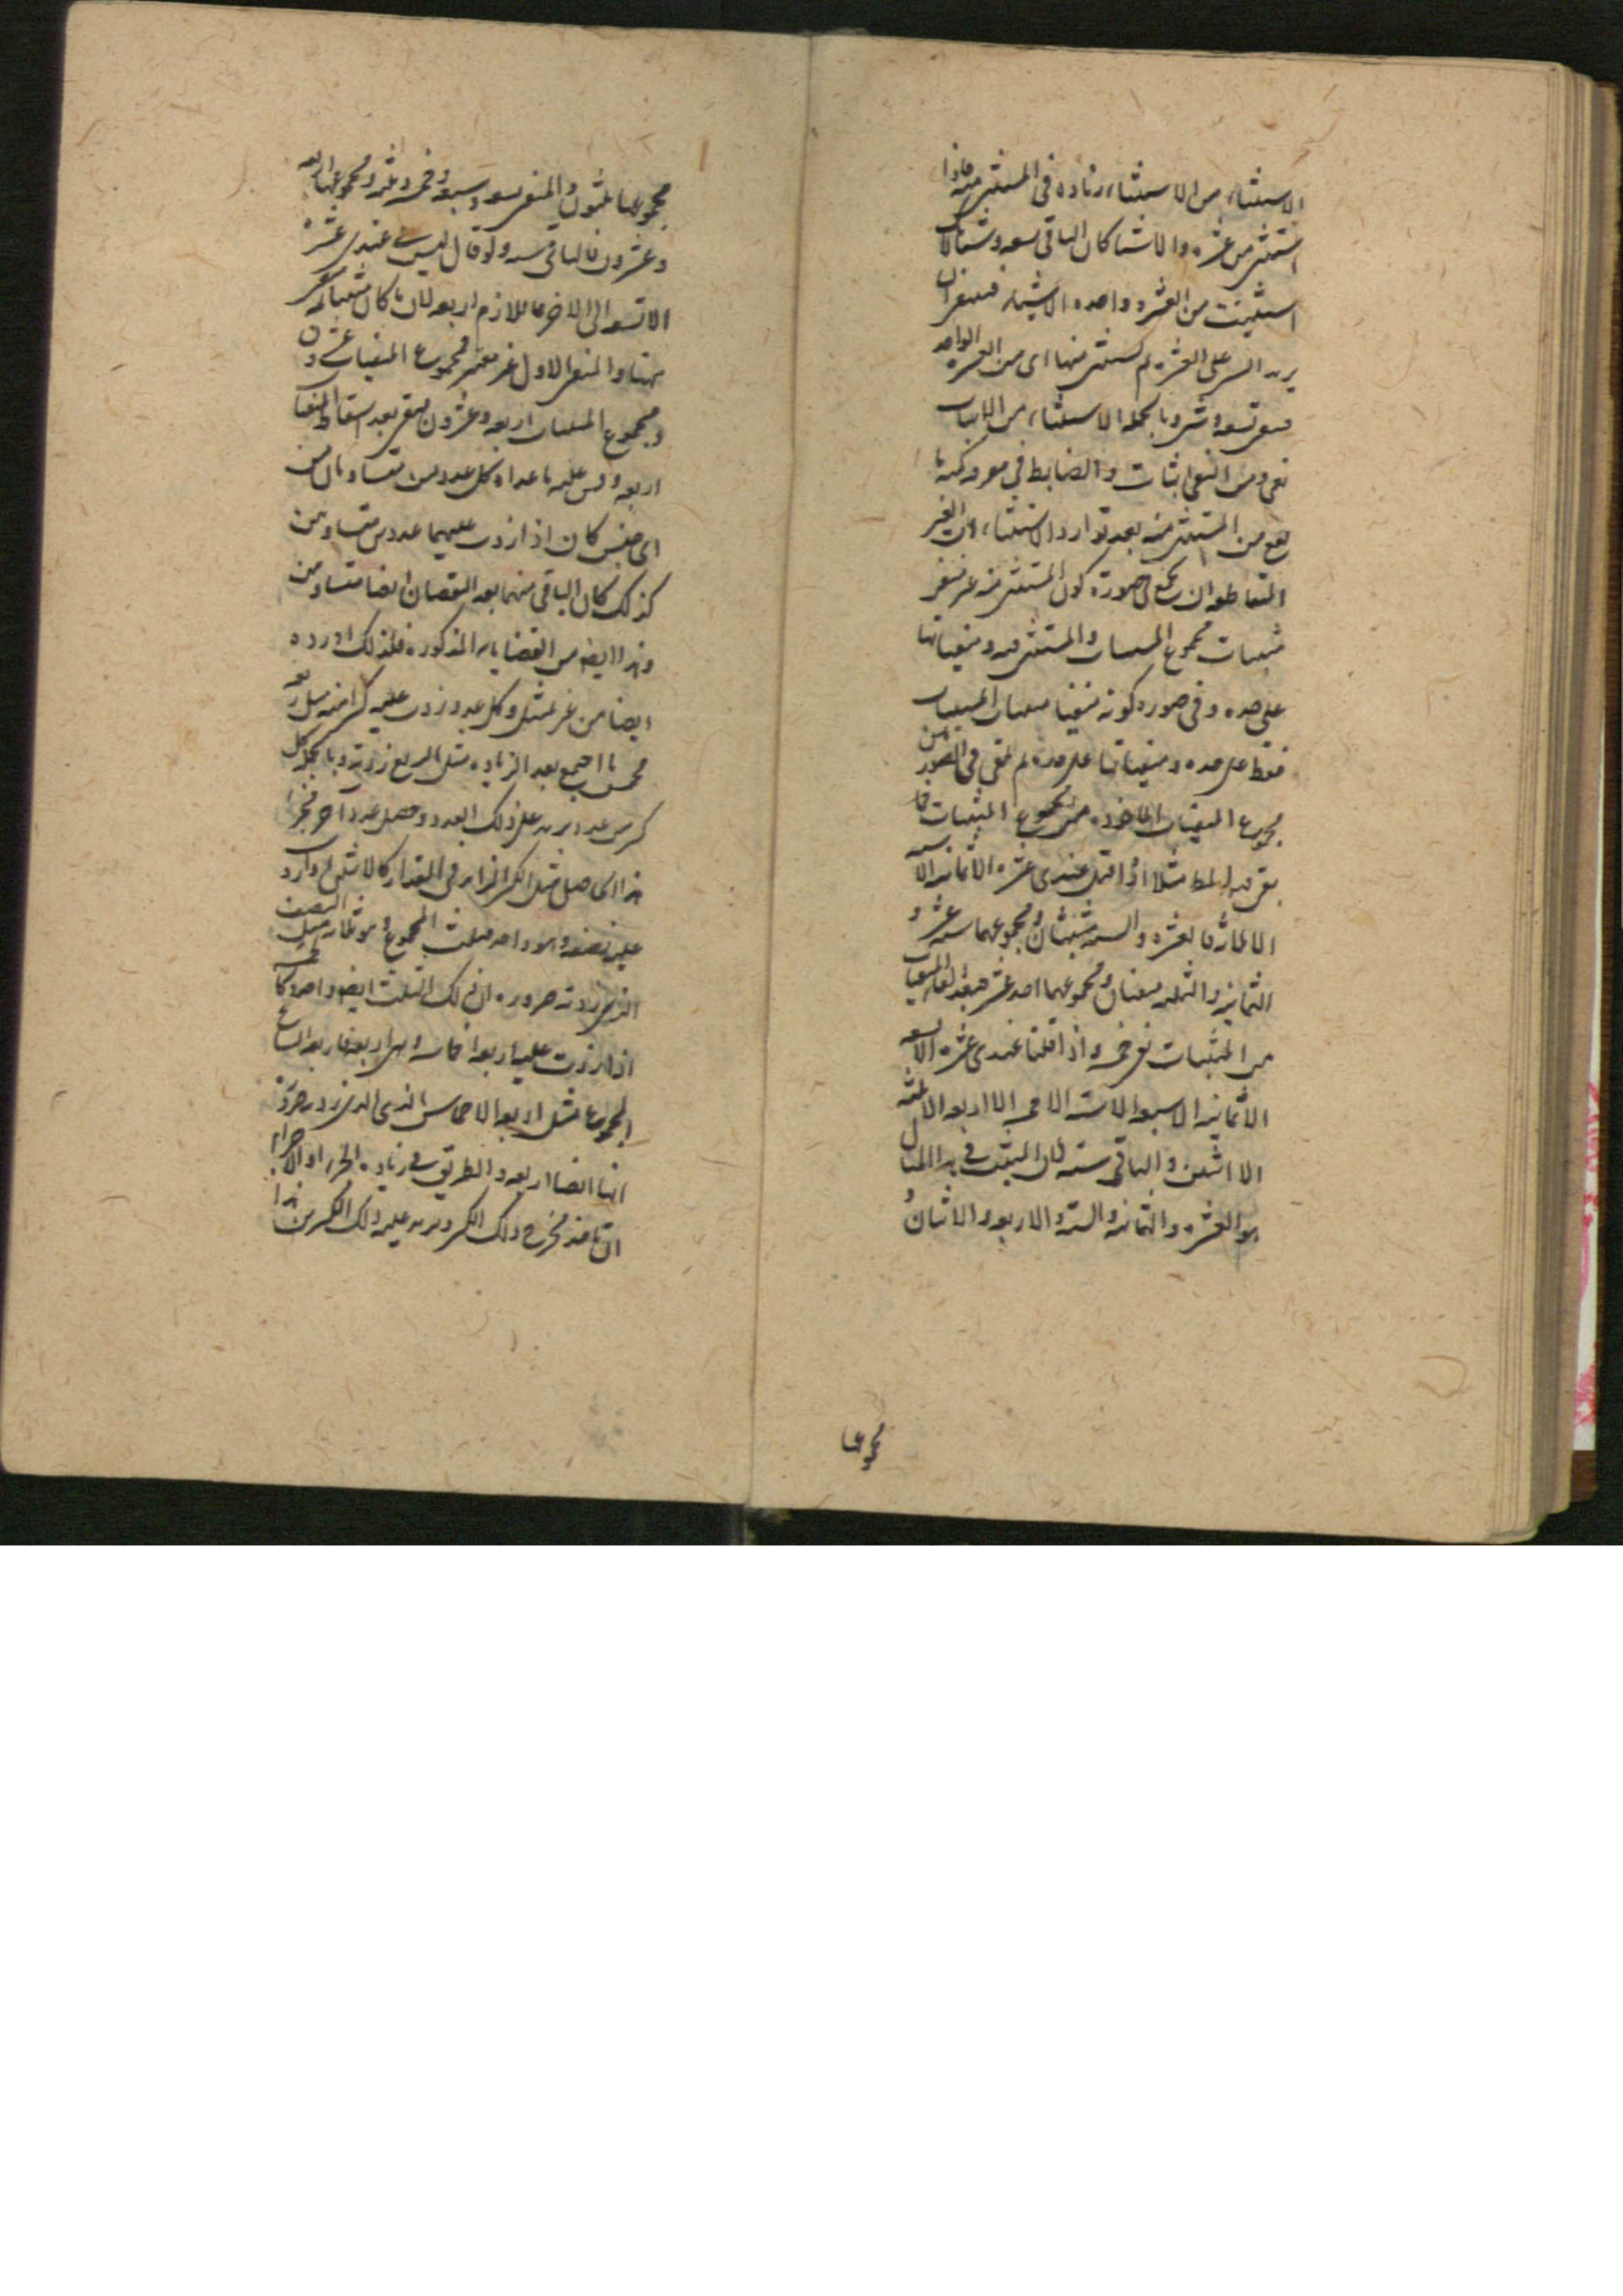 الاستثناء من الاستثناء زيادة في المستثنى منه فاذا
استثنى من عشرة واحد الا شيئا كان الباقي تسعة وشيئا لانك
استثنيت من العشرة واحدة الا شيئا فينبغي ان
يزيد الشيء على العشرة ثم يستثنى منها اي من العشرة الواحد
فيبقى تسعة وشيء وبالجملة الاستثناء من الاثبات
نفي ومن النفي اثبات والضابط في معرفة كمية ما
يبقى من المستثنى منه بعد توارد الاستثناءات الغير
المتعاطفة ان يجمع في صورة كون المستثنى منه غير منفي
مثبتات مجموع المستثنيات والمستثنى منه ومنفياتها
على حده وفي صورة كونه منفيا مثبتات المستثنيات
فقط على حده ومنفياتها على حده ثم يلقى في الصورتين
مجموع المنفيات الماخوذة من مجموع المثبتات فما
بقي فهو المط مثلا اذا قيل عندي عشرة الا ثمانية الا ستة
الا ثلاثة فالعشرة والستة مثبتتان ومجموعهما ستة عشر و
الثمانية والثلثة منفيتان ومجموعهما احد عشر فبعد القاء المنفيات
من المثبتات بقي خمسة واذا قلنا عندي عشرة الا تسعة
الا ثمانية الا سبعة الا ستة الا خمسة الا اربعة الا ثلثة
الا اثنين والباقي ستة لان المثبت في هذا المثال
هو العشرة والثمانية والستة والاربعة والاثنان و
مجموعها
مجموعها ثلثون والمنفي تسعة وسبعة وخمسة وثلثة ومجموعها اربعة
وعشرون فالباقي ستة ولو قال ليس عندي عشرة
الا تسعة الى الاخر فاللازم اربعة لان ما كان مثبتا ثمه منفي
هنا والمنفي الاول غير معتبر فمجموع المنفيات عشرون
ومجموع المثبتات اربعة وعشرون يبقى بعد اسقاط المنفيات
اربعة وقس عليه ما عداه كل عددين متساويين من
اي جنس كان اذا زدت عليهما عددين متساويين
كذلك كان الباقي منهما بعد النقصان ايضا متساويين
وهذا ايضا من القضايا المذكورة فلذلك اورده
ايضا من غير تمثيل وكل عدد زدت عليه كسرا منه مثل ربعه
ما اجتمع بعد الزيادة مثل الربع زدته وبالجملة كل
كسر من عدد يزيد على ذلك العدد وحصل عدد اخر فجزء
هذا الحاصل مثل الكسر الزايد في المقدار كالاثنين زدت
عليه نصفه وهو واحد فثلث المجموع وهو ثلثة مثل النصف
الذي زدته ضرورة ان ذلك الثلث ايضا واحد وكالخمسة
اذا زدت عليها اربعة اخماسها وهي اربعة فاربعة اتساع
المجموع مثل اربعة الاخماس الذي الذي زدته ضرورة
انها ايضا اربعة والطريق في زيادة الجزء او الاجزاء
ان تاخذ مخرج ذلك الكسر وتزيد عليه ذلك الكسر من هذا